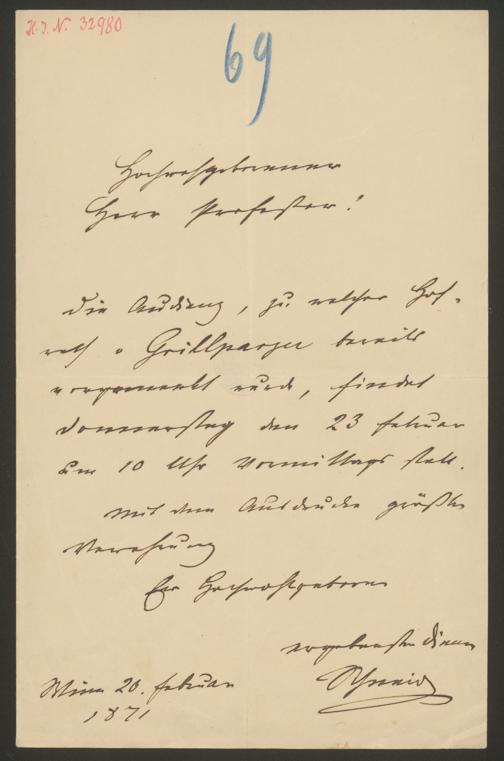 H. I. N. 32980
69
Hochwohlgeborener
Herr Professor!
Die Audienz, zu welcher Hof-
rath v Grillparzer bereits
vorgemerkt wurde, findet
Donnerstag den 23 Februar
um 10 Uhr Vormittags statt.
Mit dem Ausdrucke größter
Verehrung
Euer Hochwohlgeboren
ergebenster Diener
Wien 20. Februar
1871